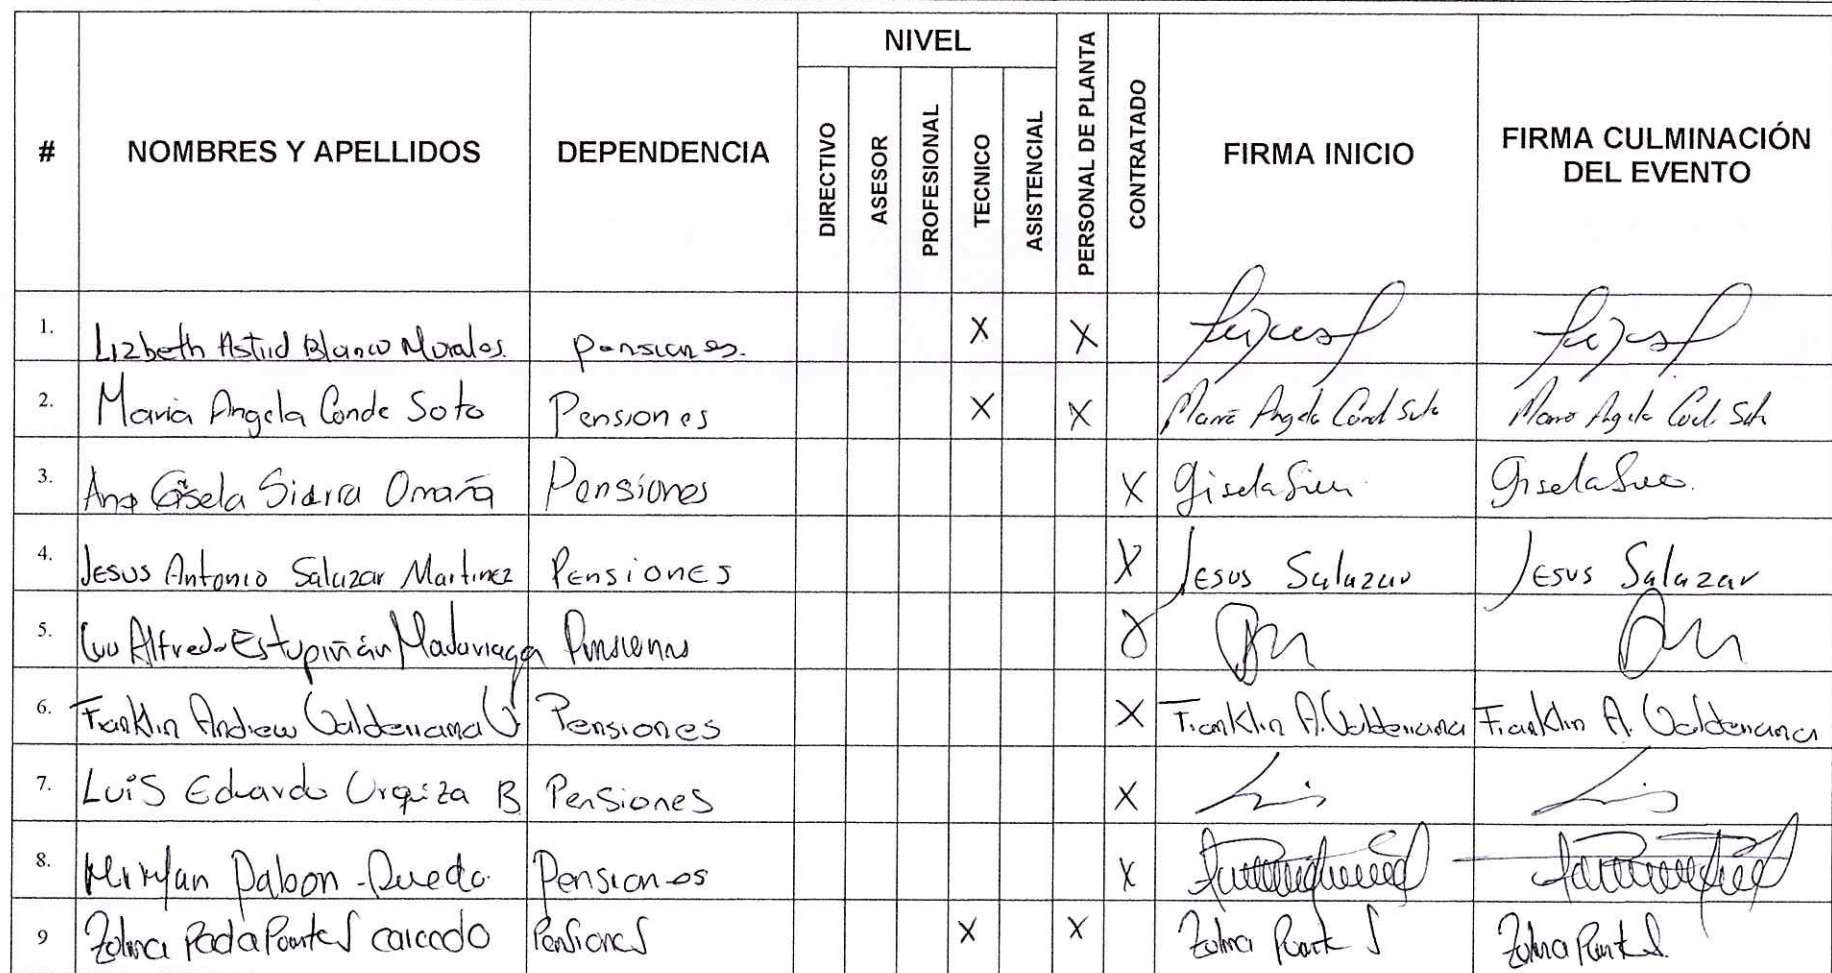 #
NOMBRES Y APELLIDOS
DEPENDENCIA
NIVEL
DIRECTIVO
ASESOR
PROFESIONAL
TECNICO
ASISTENCIAL
PERSONAL DE PLANTA
CONTRATADO
FIRMA INICIO
FIRMA CULMINACIÓN
DEL EVENTO
1. Lizbeth Astrid Blanco Morales. Pensiones. X X
2. Maria Angela Conde Soto Pensiones X X Maria Angela Cond Soto Maria Angela Cod. Soto
3. Ana Gisela Sierra Omaña Pensiones X Gisela Gisela
4. Jesus Antonio Salazar Martinez Pensiones X Jesus Salazar Jesus Salazar
5. Alfredo Estupiñán Madariaga Pensiones
6. Franklin Andrew Valderrama V Pensiones X Franklin A. Valderrama Franklin A. Valderrama
7. Luis Eduardo Urquiza B Pensiones X Luis Luis
8. Pabon Pensiones X
9 Pensiones X X